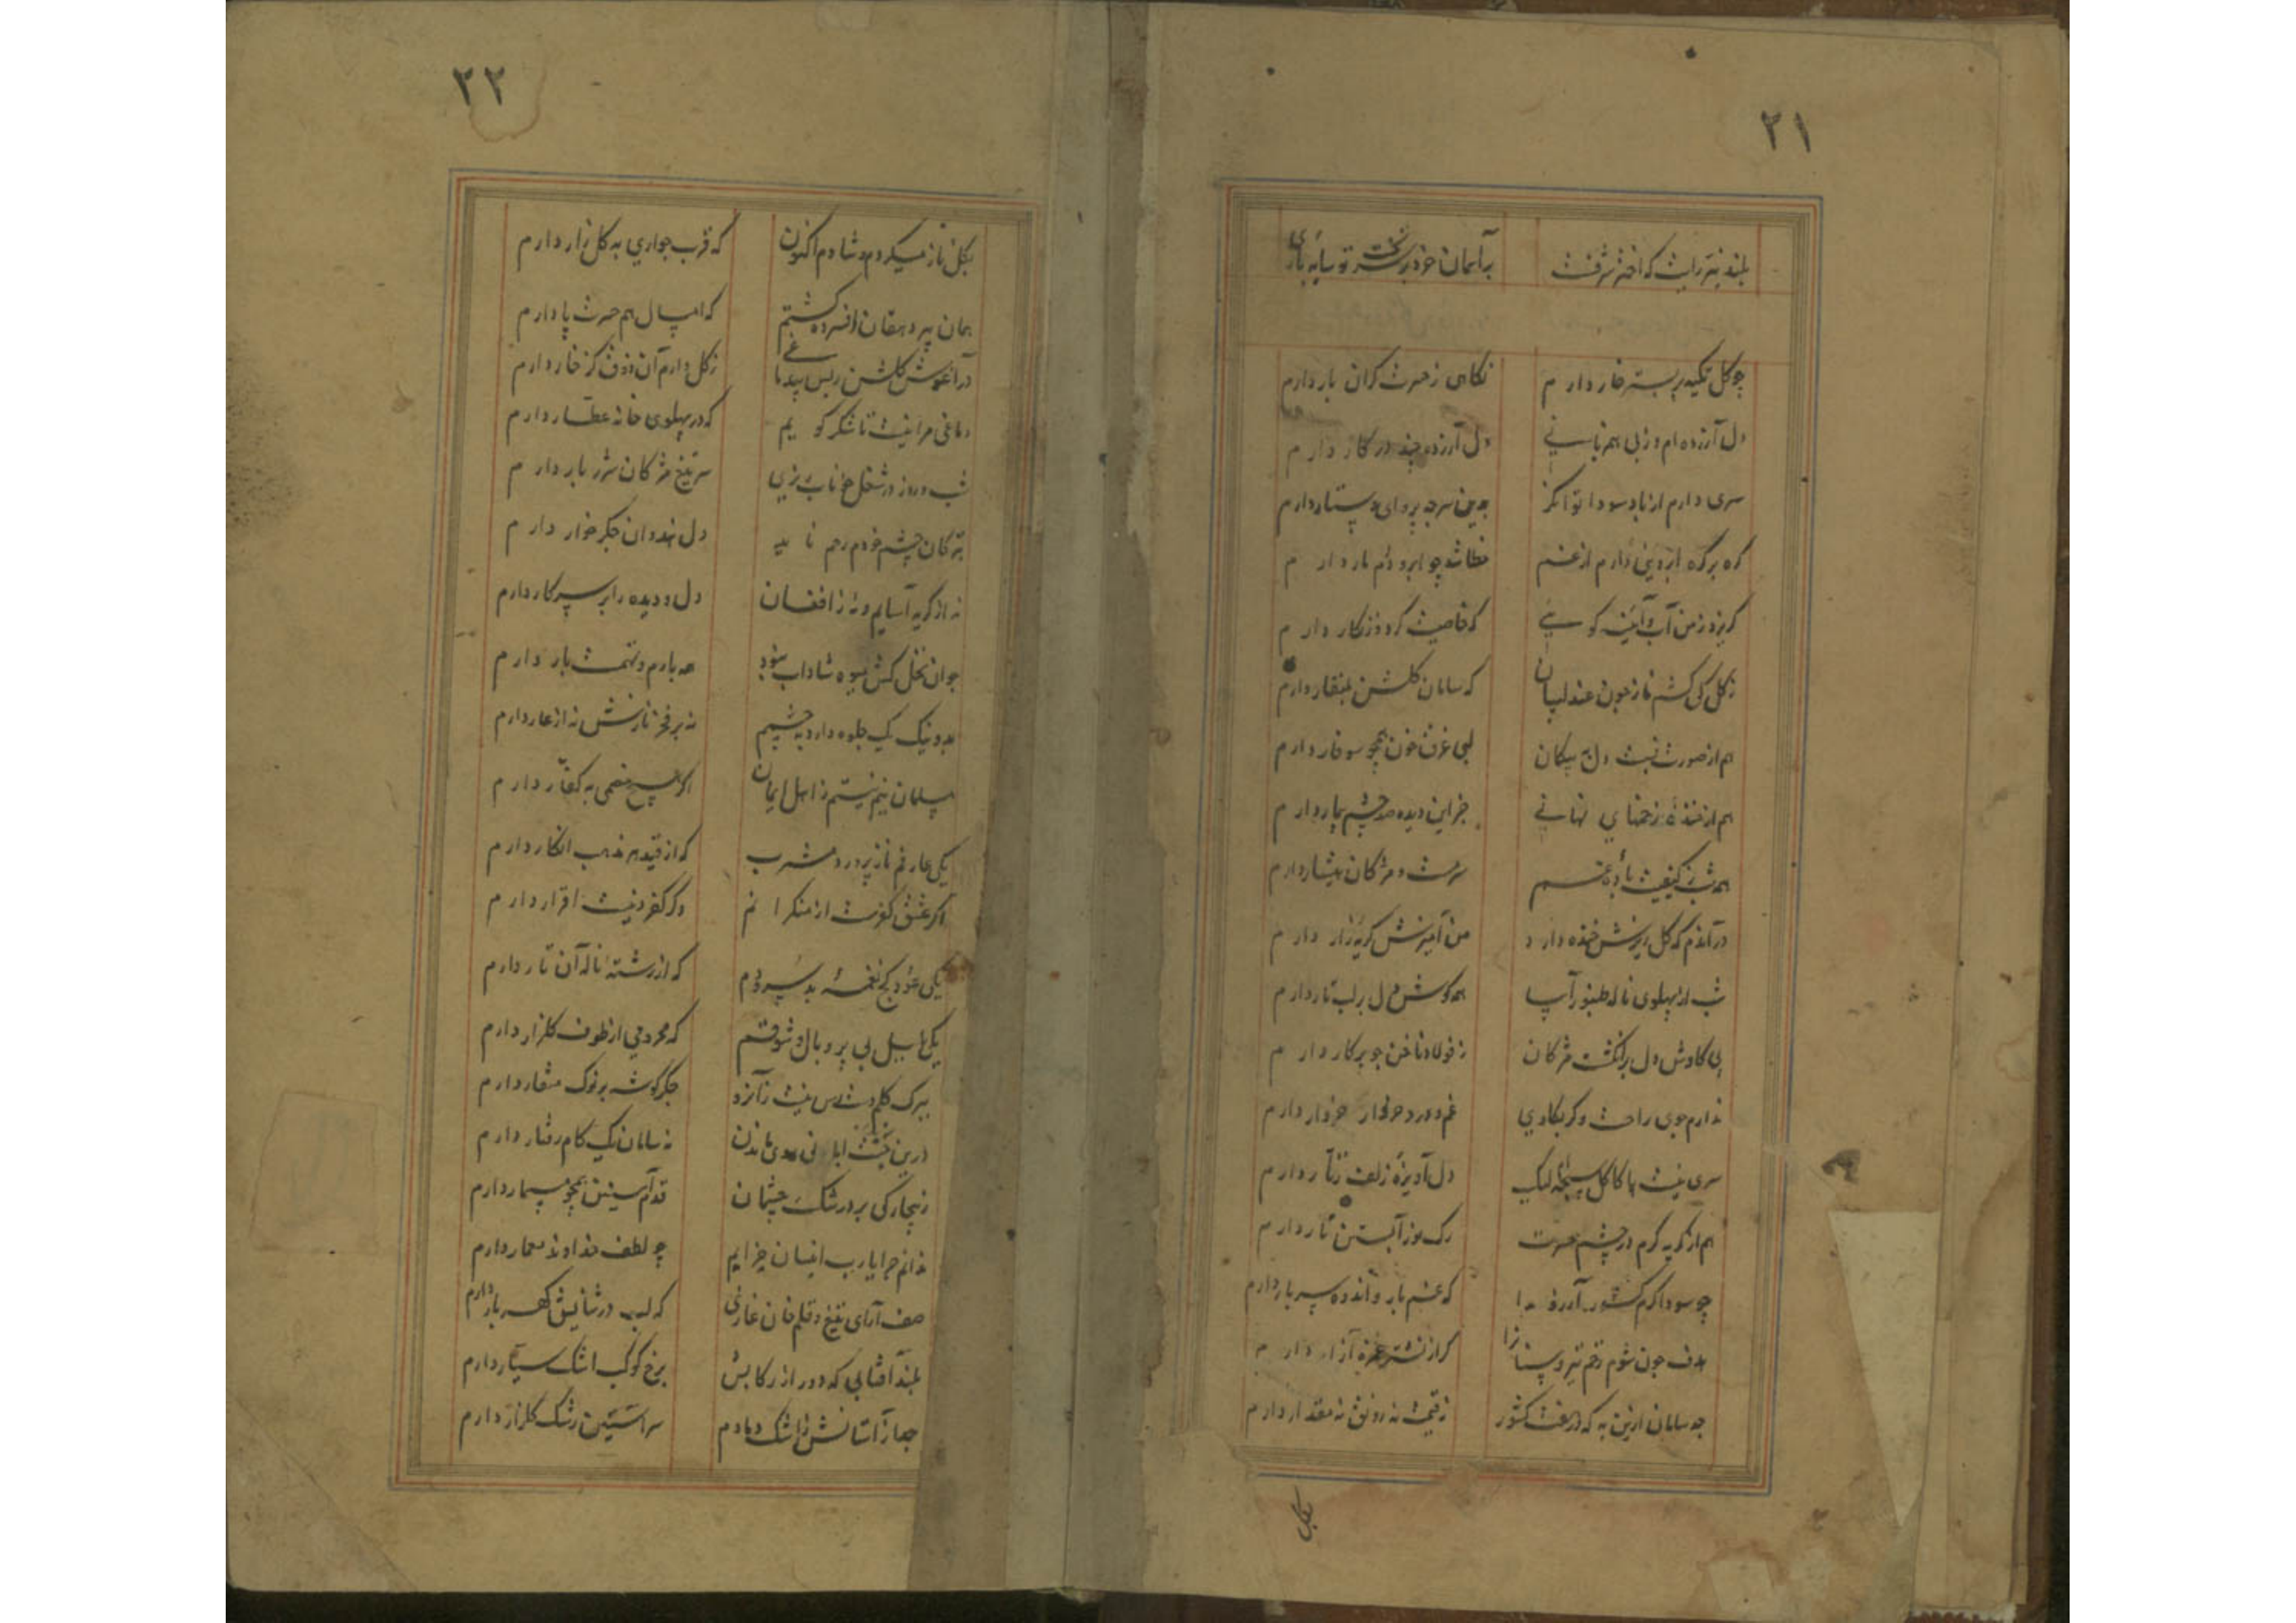 ۲۱
بلند نیر رایت که اختر شرفت برآسمان خرد بر سر تو سایه
چو کل تکیه بر بستر خار دارم نکاهی ز حسرت کران بار دارم
دل آزرده ام وز بی دل آزرده چند در کار دارم
سری دارم از باد سودا توانکر بدین سر چه پروای دستار دارم
کره بر کره ابرویی دارم از غم
کریزد ز من آب و آیینه کویی که خاصیت کرد و زنکار دارم
ز کل کی کشم ناز چون عندلیبان که سامان کلشن بمنقار دارم
هم از صورت تست دل پیکان لبی غرق خون همچو سوفار دارم
هم از خنده زخمهای نهانی جز این دیده صد چشم بیدار دارم
همه شب ز کیفیت باده غم سرمست و مژکان هشیار دارم
در آندم که کل ریزش خنده دارد من آمیزش کریه زار دارم
شب از پهلوی ناله طنبور آسا همه کوش دل بر لب تار دارم
پی کاوش دل بر انکشت مژکان ز فولاد ناخن چو پرکار دارم
ندارم جوی راحت وکر بکاوی غم و درد خروار خروار دارم
سری نیست با کاکل سبحه لیک دل آویزه زلف زنار دارم
هم از کریه کرم در چشم حسرت رک
چو سوداکرم کشور آرزو را که غم بار و اندوه سربار دارم
هدف چون شوم زخم تیر و سنان را کز از نشتر غمزه آزار دارم
چه سامان ازین به که در هفت کشور نه قیمت نه رونق نه مقدار دارم
بکل
۲۲
بکل ناز میکردم و شادم اکنون که قرب جواری به کلزار دارم
همان پیر دهقان افسرده کشتم که امسال هم حسرت پار دارم
در آغوش کلشن ز بس بیدماغی ز کل دارم آن ذوق کز خار دارم
دماغی مرا نیست تا شکر کویم که در پهلوی خانه عطار دارم
شب و روز در شغل خوناب ریزی سر تیغ مژکان شرربار دارم
بترکان چشم خودم رحم ناید دل هندوان جکرخوار دارم
نه از کریه آسایم و نه ز افغان دل و دیده را بر سر کار دارم
جوان نخل کش میوه شاداب نبود نه بارم و تهمت بار دارم
بد و نیک یک جلوه دارد به چشمم نه بر فخر نازش نه از عار دارم
مسلمان نیم نیستم ز اهل ایمان اکر هیچ خصمی به کفار دارم
یکی عارفم ناز پرورد مشرب که از قید هر مذهب انکار دارم
اکر عشق کفرست از منکرانم وکر کفر دینست اقرار دارم
یکی عود کج نغمه بد سرودم که از رشته ناله آن تار دارم
یکی بلبل بی پر و بال و شوقم که محرومی از طوف کلزار دارم
ببرک کلم دسترس نیست زآنرو جکرکوشه بر نوک منقار دارم
نه سامان یک کام رفتار دارم
ز بیچارکی بر در اشک چشمان قدم آستین همچو مسمار دارم
ندانم چرا یارب اینسان خرابم چو لطف خداوند معمار دارم
صف آرای تیغ و قلم خان غازی که لب در ثنایش کهربار دارم
بلند آفتابی که دور از رکابش برخ کوکب اشک سیار دارم
جدا ز آستانش ز اشک دمادم سر آستین رشک کلزار دارم